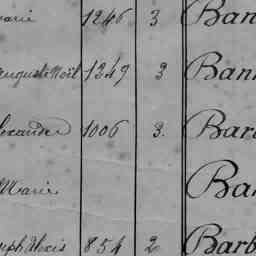 Marie 1246 3 Ban
Auguste Noël 1349 3 Ban
lexandre 1006 3. Bar
Marie Ba
seph Alexis 854 2 Barb